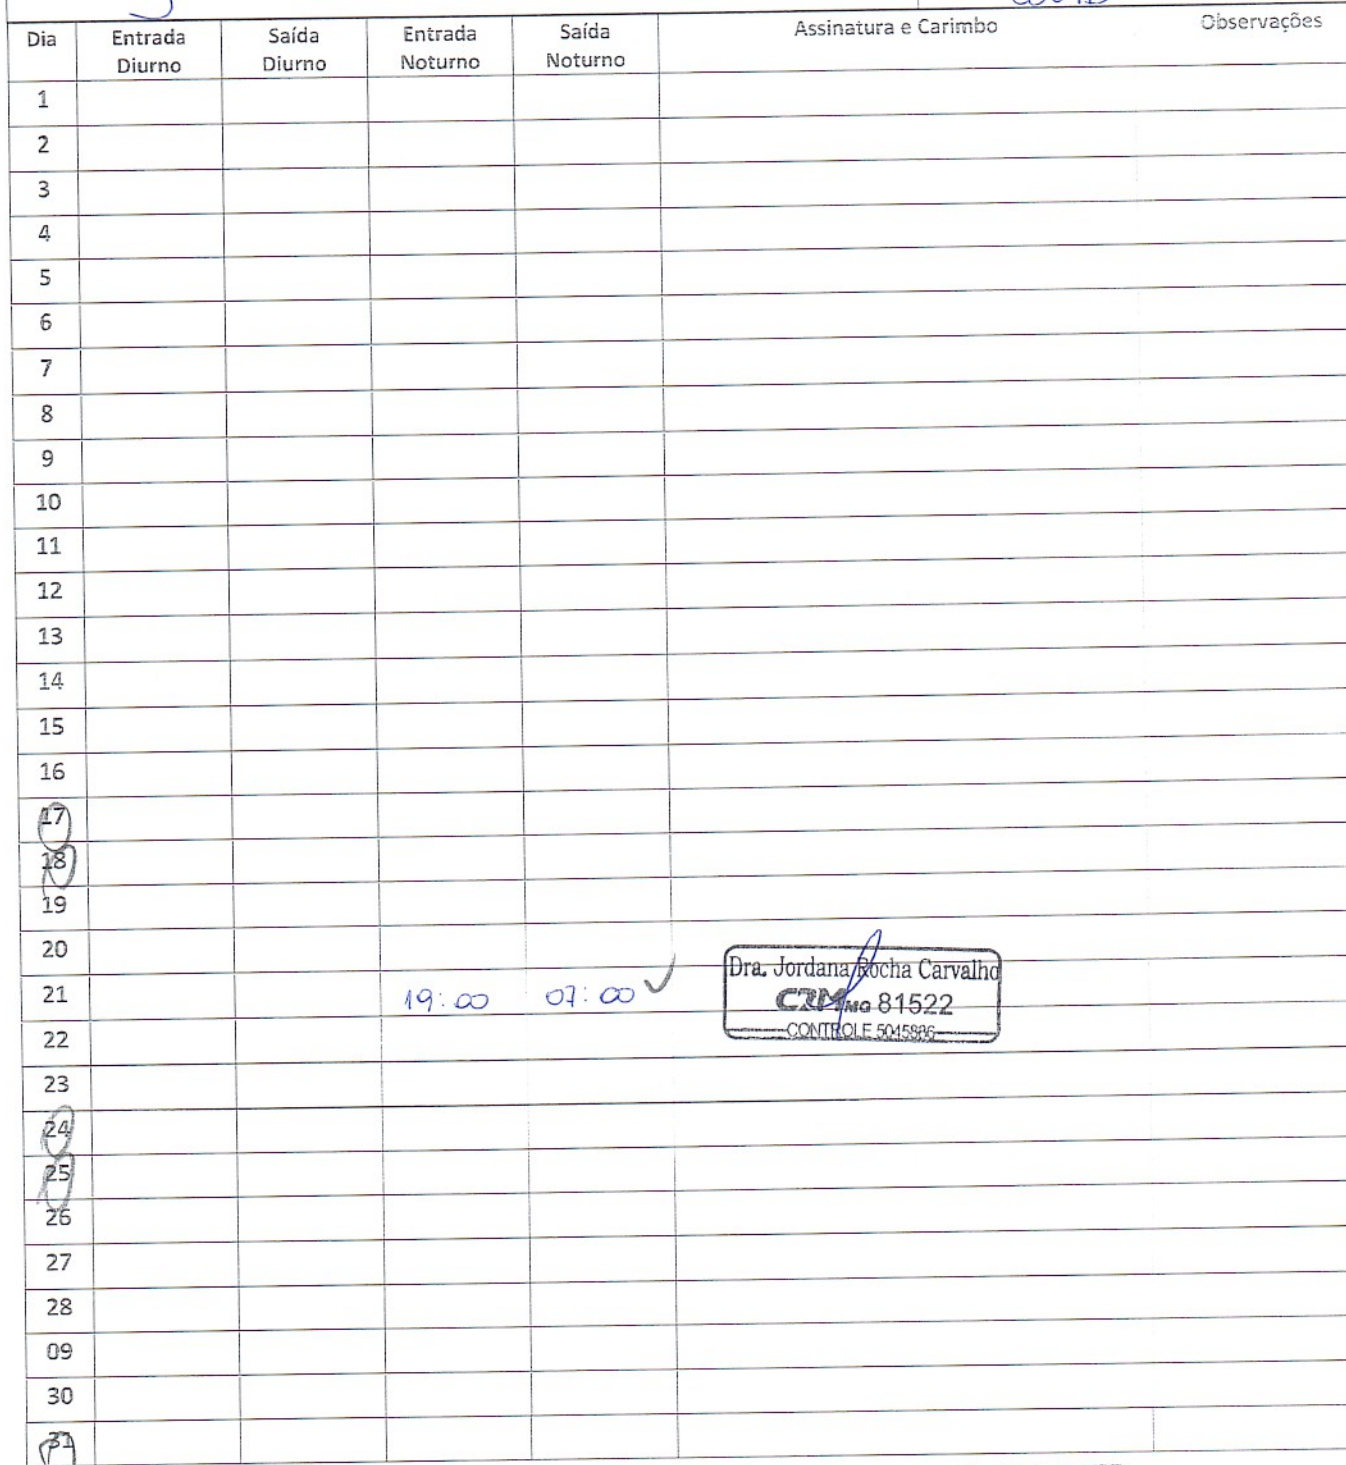 Dia Entrada Diurno Saída Diurno Entrada Noturno Saída Noturno Assinatura e Carimbo Observações
1
2
3
4
5
6
7
8
9
10
11
12
13
14
15
16
17
18
19
20
21 19:00 07:00 ✓
Dra. Jordana Rocha Carvalho
CRM MG 81522
CONTROLE 5045886
22
23
24
25
26
27
28
09
30
31